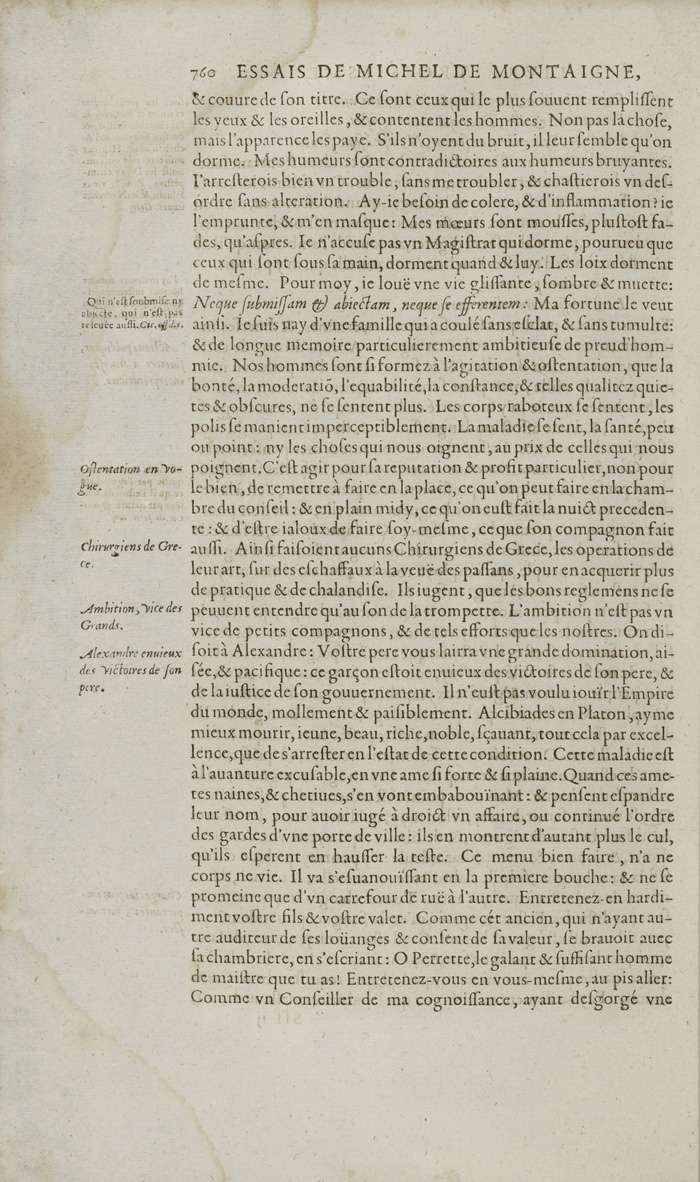 760 ESSAIS DE MICHEL DE MONTAIGNE,
& couure de ſon titre. Ce ſont ceux qui le plus ſouuent rempliſſent
les yeux & les oreilles, & contentent les hommes. Non pas la choſe,
mais l'apparence les paye. S'ils n'oyent du bruit, il leur ſemble qu'on
dorme. Mes humeurs ſont contradictoires aux humeurs bruyantes.
I'arreſterois bien vn trouble, ſans me troubler, & chaſtierois vn deſ-
ordre ſans alteration. Ay-ie beſoin de colere, & d'inflammation? ie
l'emprunte, & m'en maſque: Mes mœurs ſont mouſſes, pluſtoſt fa-
des, qu'aſpres. Ie n'accuſe pas vn Magiſtrat qui dorme, pourueu que
ceux qui ſont ſous ſa main, dorment quand & luy. Les loix dorment
de meſme. Pour moy, ie louë vne vie gliſſante, ſombre & muette:
Neque ſubmiſſam & abiectam, neque ſe efferentem: Ma fortune le veut
ainſi. Ie ſuis nay d'vne famille qui a coulé ſans eſclat, & ſans tumulte:
& de longue memoire particulierement ambitieuſe de preud'hom-
mie. Nos hommes ſont ſi formez à l'agitation & oſtentation, que la
bonté, la moderatiõ, l'equabilité, la conſtance, & telles qualitez quie-
tes & obſcures, ne ſe ſentent plus. Les corps raboteux ſe ſentent, les
polis ſe manient imperceptiblement. La maladie ſe ſent, la ſanté, peu
ou point: ny les choſes qui nous oignent, au prix de celles qui nous
poignent. C'eſt agir pour ſa reputation & profit particulier, non pour
le bien, de remettre à faire en la place, ce qu'on peut faire en la cham-
bre du conſeil: & en plain midy, ce qu'on euſt fait la nuict preceden-
te: & d'eſtre ialoux de faire ſoy-meſme, ce que ſon compagnon fait
auſſi. Ainſi faiſoient aucuns Chirurgiens de Grece, les operations de
leur art, ſur des eſchaffaux à la veuë des paſſans, pour en acquerir plus
de pratique & de chalandiſe. Ils iugent, que les bons reglemens ne ſe
peuuent entendre qu'au ſon de la trompette. L'ambition n'eſt pas vn
vice de petits compagnons, & de tels efforts que les noſtres. On di-
ſoit à Alexandre: Voſtre pere vous lairra vne grande domination, ai-
ſée, & pacifique: ce garçon eſtoit enuieux des victoires de ſon pere, &
de la iuſtice de ſon gouuernement. Il n'euſt pas voulu iouïr l'Empire
du monde, mollement & paiſiblement. Alcibiades en Platon, ayme
mieux mourir, ieune, beau, riche, noble, ſçauant, tout cela par excel-
lence, que de s'arreſter en l'eſtat de cette condition. Cette maladie eſt
à l'auanture excuſable, en vne ame ſi forte & ſi plaine. Quand ces ame-
tes naines, & chetiues, s'en vont embabouïnant: & penſent eſpandre
leur nom, pour auoir iugé à droict vn affaire, ou continué l'ordre
des gardes d'vne porte de ville: ils en montrent d'autant plus le cul,
qu'ils eſperent en hauſſer la teſte. Ce menu bien faire, n'a ne
corps ne vie. Il va s'eſuanouïſſant en la premiere bouche: & ne ſe
promeine que d'vn carrefour de ruë à l'autre. Entretenez-en hardi-
ment voſtre fils & voſtre valet. Comme cét ancien, qui n'ayant au-
tre auditeur de ſes loüanges & conſent de ſa valeur, ſe brauoit auec
ſa chambriere, en s'eſcriant: O Perrette, le galant & ſuffiſant homme
de maiſtre que tu as! Entretenez-vous en vous-meſme, au pis aller:
Comme vn Conſeiller de ma cognoiſſance, ayant deſgorgé vne
Qui n'eſt ſoubmiſe ny
abjecte, qui n'eſt pas
releuée auſſi. Cic. offic.
Oſtentation en vo-
gue.
Chirurgiens de Gre-
ce.
Ambition, vice des
Grands.
Alexandre enuieux
des victoires de ſon
pere.